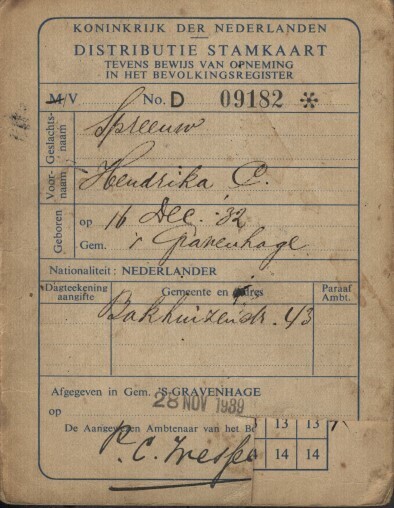 KONINKRIJK DER NEDERLANDEN
DISTRIBUTIE STAMKAART
TEVENS BEWIJS VAN OPNEMING
IN HET BEVOLKINGSREGISTER
M/V No. D 09182 *
Geslachts-
naam
Spreeuw
Voor-
naam
Hendrika C.
Geboren
op 16 Dec. '32
Gem. 's Gravenhage
Nationaliteit: NEDERLANDER
Dagteekening
aangifte
Gemeente en adres
Paraaf
Ambt.
Bakhuizenstr. 43
Afgegeven in Gem. 'S-GRAVENHAGE
op 28 NOV 1939
De Aangewezen Ambtenaar van het Be
P. C.
13 13
14 14